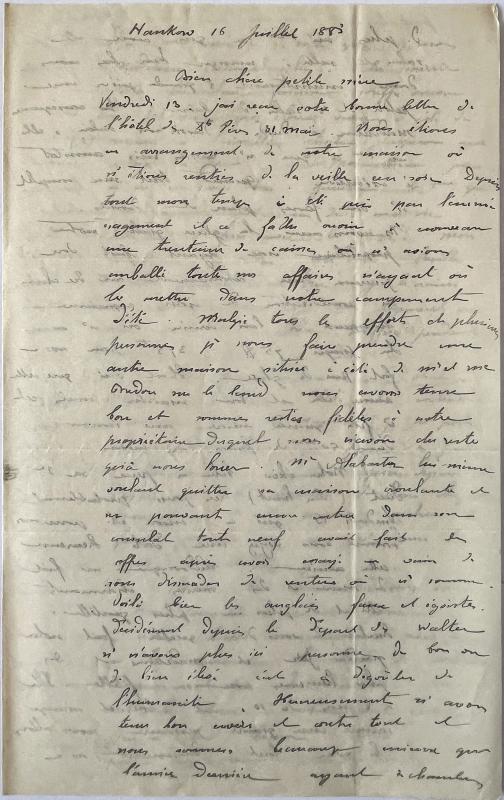 Hankow 16 Juillet 1883
Bien chère petite mère
Vendredi 13. j'ai reçu votre bonne lettre de
l'hôtel des Sts Pères, 31 mai. Nous étions
en arrangement de notre maison où
n/ étions rentrés de la veille au soir. Depuis
tout mon temps a été pris par l'emmé
nagement il a fallu ouvrir à nouveau
une trentaine de caisses où n/ avions
emballé toutes nos affaires n'ayant où
les mettre dans notre campement
d'été. Malgré tous les efforts de plusieurs
personnes pr nous faire prendre une
autre maison située à côté de Mr et Me
sur le bund nous avons tenu
bon et sommes restés fidèles à notre
propriétaire duquel nous n'avons du reste
qu'à nous louer. Mr Alabaster lui même
voulant quitter sa maison croulante et
ne pouvant encore entrer dans son
consulat tout neuf avait fait des
offres après avoir essayé en vain de
nous dissuader de rentrer où n/ sommes.
Voilà bien les anglais faux et égoïstes.
Décidément depuis le départ des Walter
n/ n'avons plus ici personne de bon ou
de bien élevé c'est à dégoûter de
l'humanité. Heureusement n/ avons
tenu bon envers et contre tout et
nous sommes beaucoup mieux que
l'année dernière ayant chambres